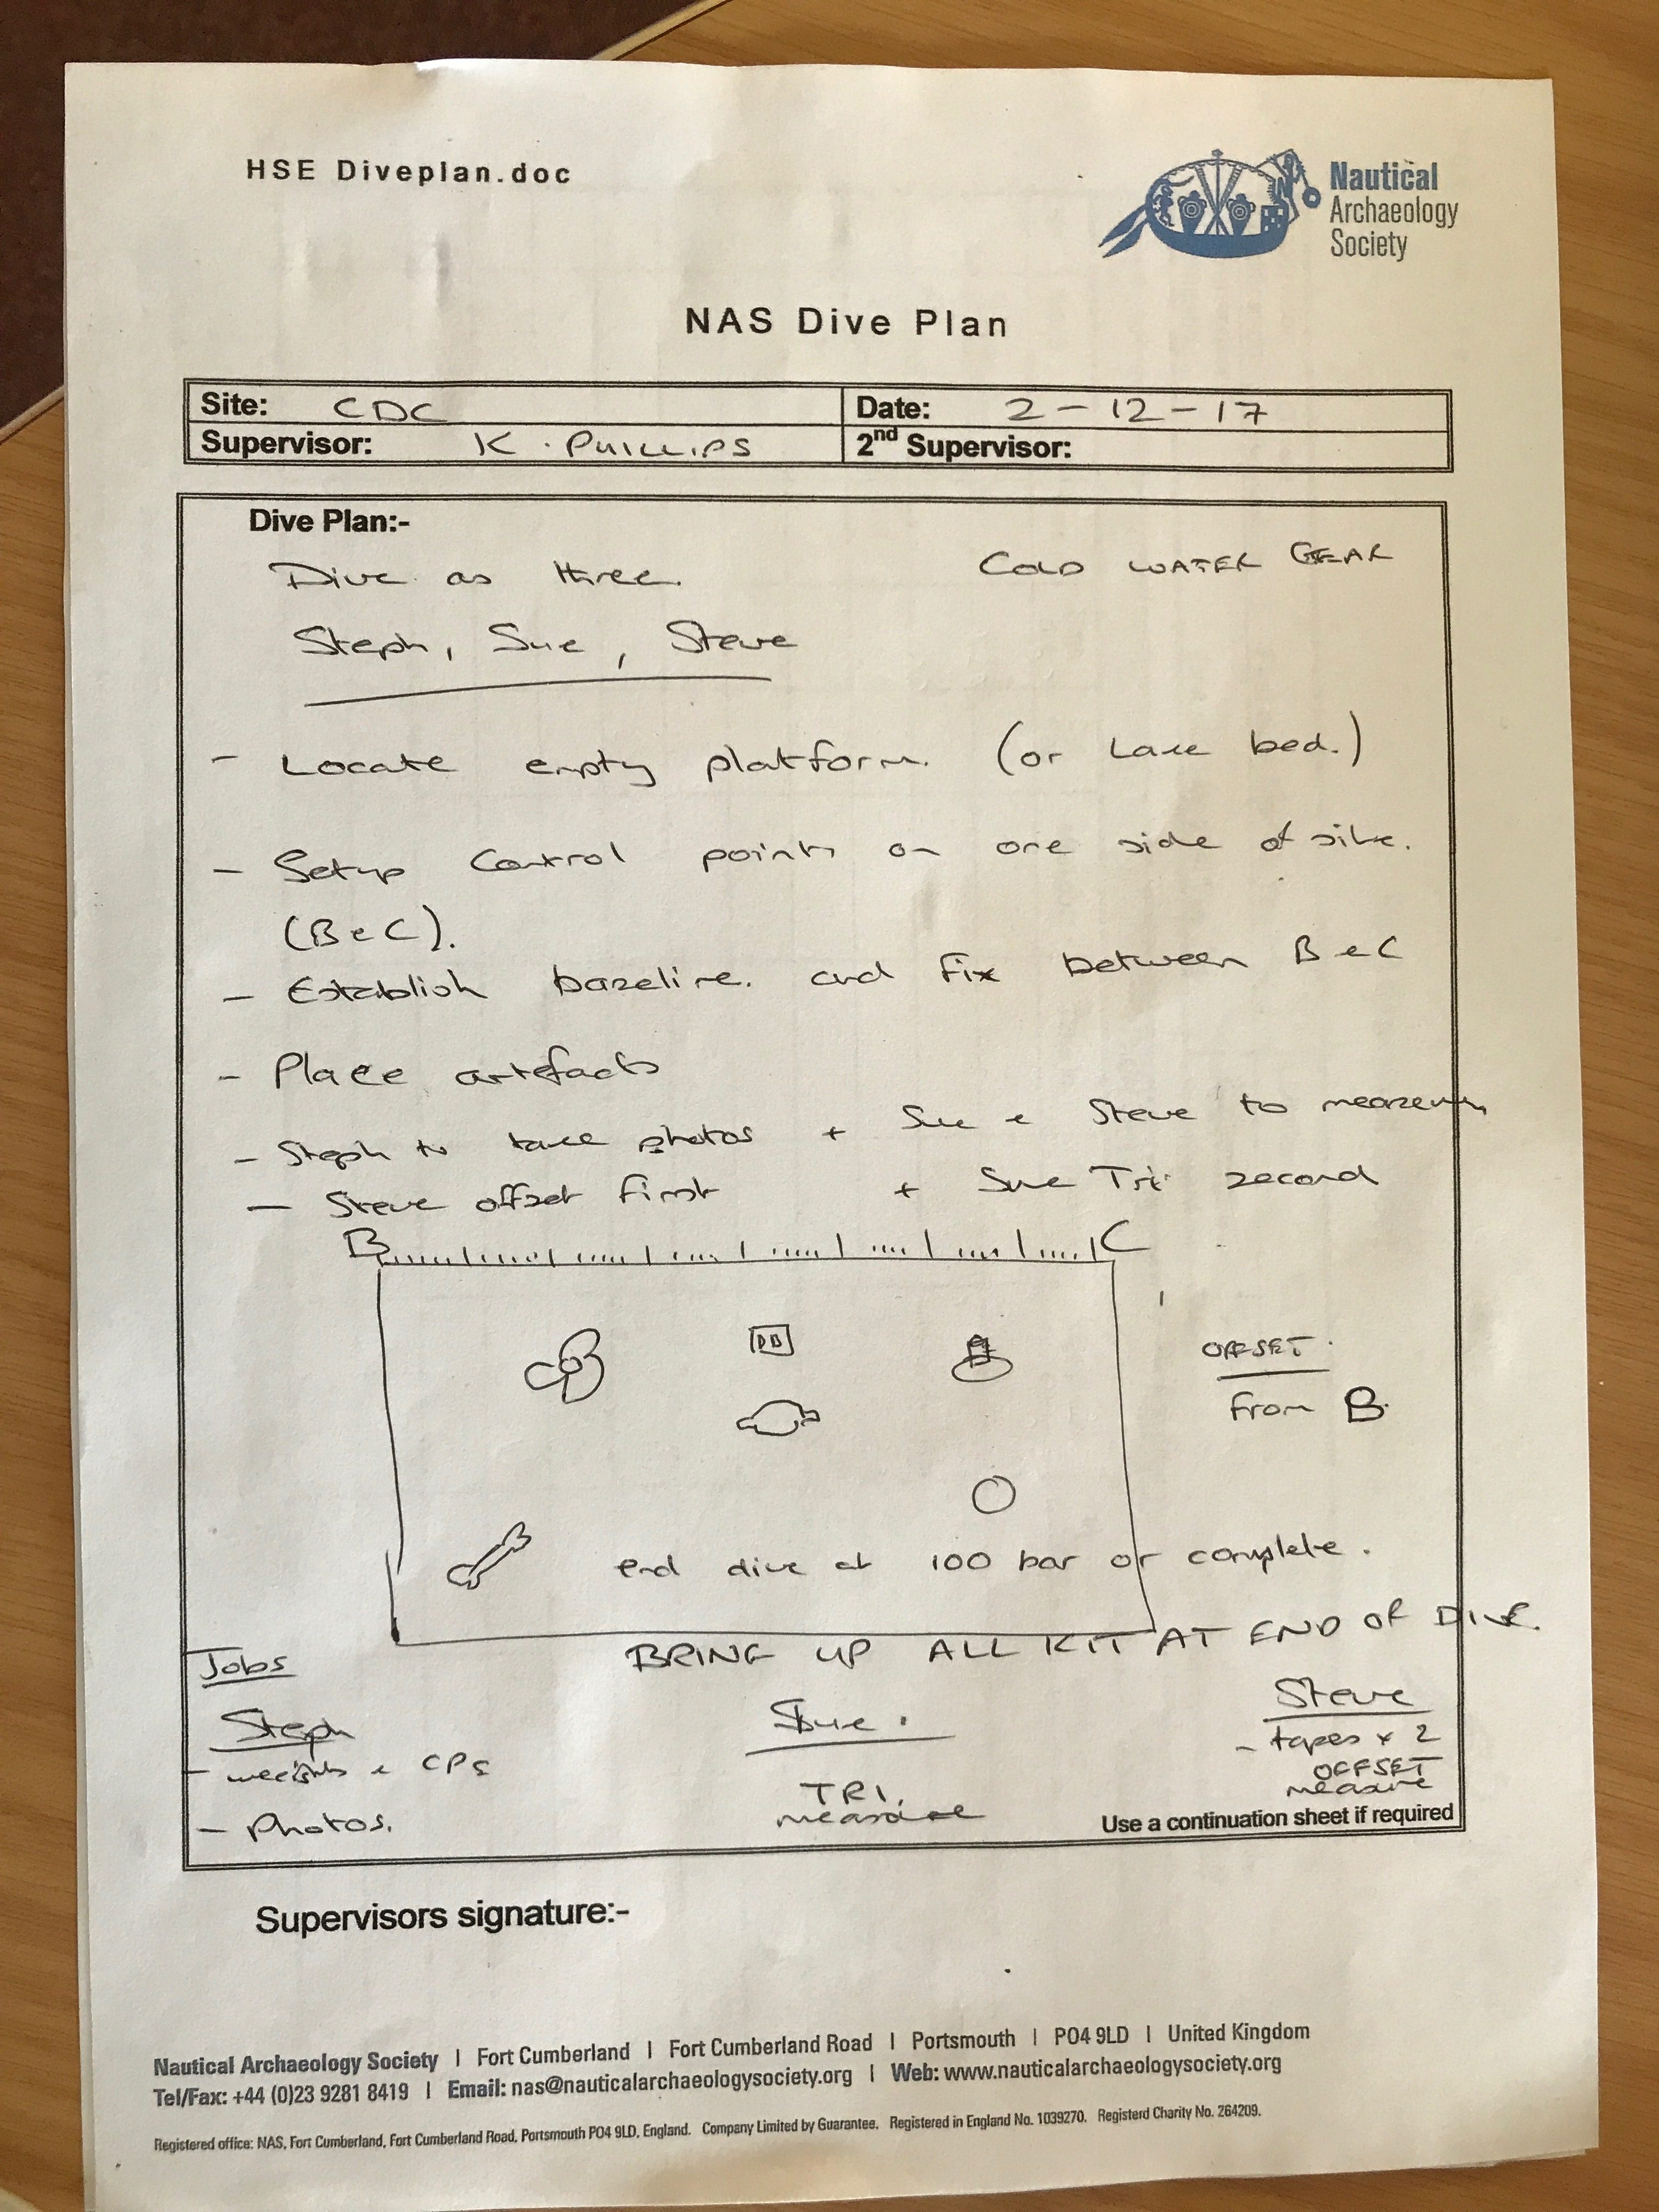 HSE Diveplan.doc
Nautical
Archaeology
Society
NAS Dive Plan
Site: CDC Date: 2-12-17
Supervisor: K. PHILLIPS 2nd Supervisor:
Dive Plan:-
Dive as three. COLD WATER GEAR
Steph, Sue, Steve
- Locate empty platform. (or Lake bed.)
- Setup Control points on one side of site.
(B & C).
- Establish baseline. and fix between B & C
- Place artefacts
- Steph to take photos + Sue & Steve to measure
- Steve offset first + Sue Tri second
B C
OFFSET.
from B.
end dive at 100 bar or complete.
BRING UP ALL KIT AT END OF DIVE.
Jobs
Steph Sue. Steve
- weights & CPs - tapes x 2
OFFSET
- Photos. TRI. measure
measure
Use a continuation sheet if required
Supervisors signature:-
Nautical Archaeology Society | Fort Cumberland | Fort Cumberland Road | Portsmouth | PO4 9LD | United Kingdom
Tel/Fax: +44 (0)23 9281 8419 | Email: nas@nauticalarchaeologysociety.org | Web: www.nauticalarchaeologysociety.org
Registered office: NAS, Fort Cumberland, Fort Cumberland Road, Portsmouth PO4 9LD, England. Company Limited by Guarantee. Registered in England No. 1039270. Registerd Charity No. 264209.